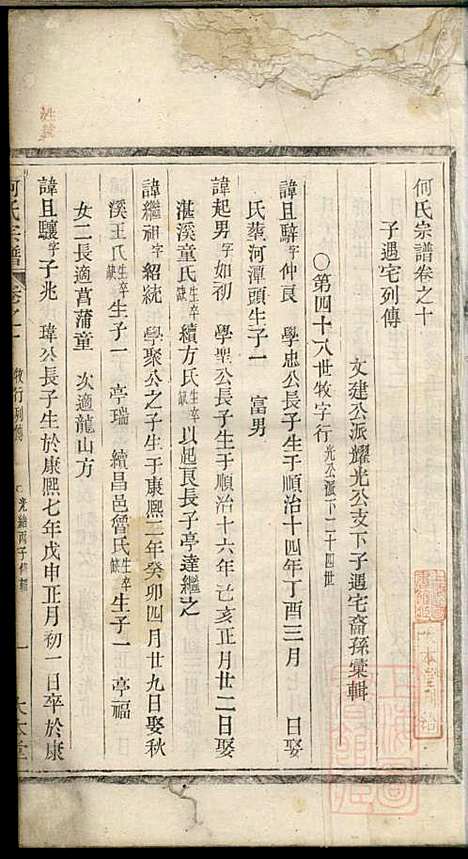 何氏宗譜卷之十
子遇宅列傳
文建公派耀光公支下子遇宅裔孫彙輯
○第四十八世牧字行 光公派下二十四世
諱且騂字仲良 學忠公長子生于順治十四年丁酉三月 娶
氏葬河潭頭生子一 富男
諱起男字如初 學聖公長子生于順治十六年己亥正月廿二日娶
湛溪童氏生卒缺續方氏生卒缺以起良長子亭達繼之
諱繼祖字紹統 學聚公之子生于康熙二年癸卯四月廿九日娶秋
溪王氏生卒缺生子一 亭瑞 續昌邑曾氏生卒缺生子一 亭福
女二長適菖蒲童 次適龍山方
諱且驤字子兆 瑋公長子生於康熙七年戊申正月初一日卒於康
何氏宗譜 卷之十 牧行列傳 光緒丙子重輯 一 大本堂